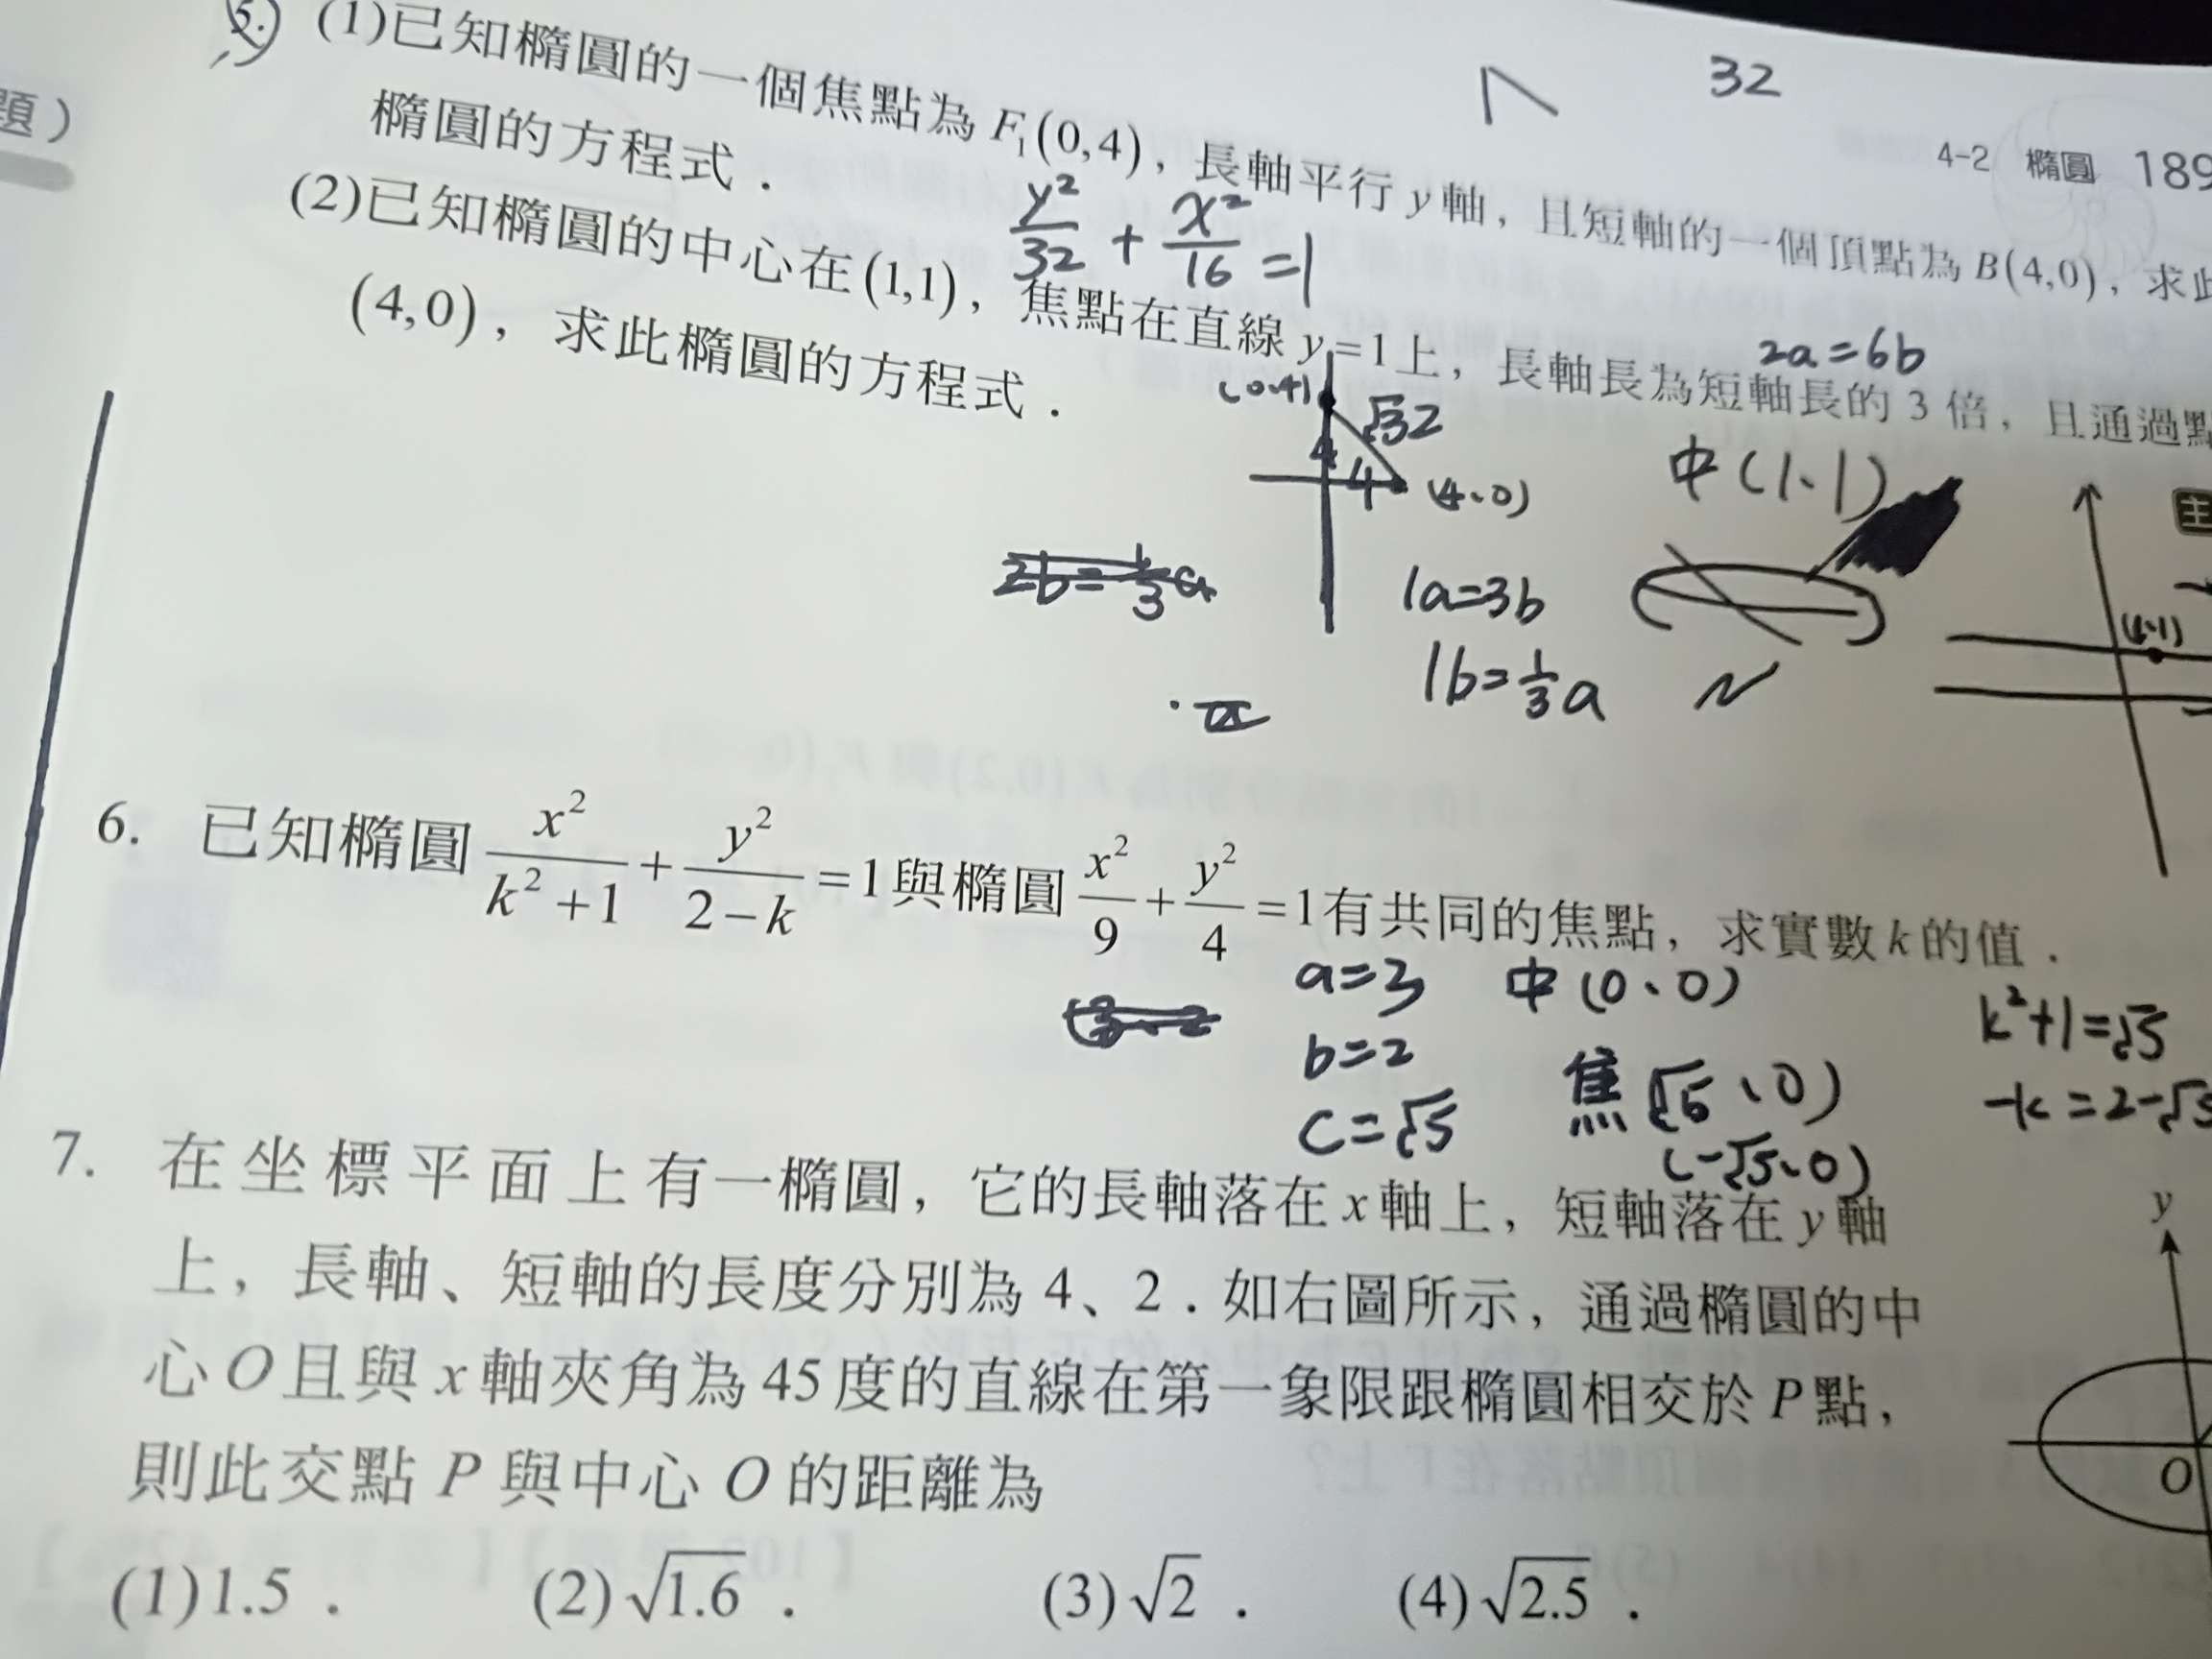 32
4-2 橢圓 189
題)
5. (1)已知橢圓的一個焦點為 F₁(0,4)，長軸平行 y 軸，且短軸的一個頂點為 B(4,0)，求此
橢圓的方程式．
y²/32 + x²/16 = 1
(2)已知橢圓的中心在(1,1)，焦點在直線 y=1上，長軸長為短軸長的 3 倍，且通過點
(4,0)，求此橢圓的方程式．
2a=6b
(0、4)
√32
4
4
(4、0)
中(1、1)
主
2b=1/3a
1a=3b
1b=1/3a
(1、1)
6. 已知橢圓 x²/(k²+1) + y²/(2-k) =1與橢圓 x²/9 + y²/4 =1有共同的焦點，求實數 k 的值．
a=3
中(0、0)
k²+1=√5
b=2
焦(√5、0)
-k=2-√5
c=√5
(-√5、0)
7. 在坐標平面上有一橢圓，它的長軸落在 x 軸上，短軸落在 y 軸
上，長軸、短軸的長度分別為 4、2．如右圖所示，通過橢圓的中
心 O 且與 x 軸夾角為 45 度的直線在第一象限跟橢圓相交於 P 點，
則此交點 P 與中心 O 的距離為
y
O
(1)1.5． (2)√1.6． (3)√2． (4)√2.5．